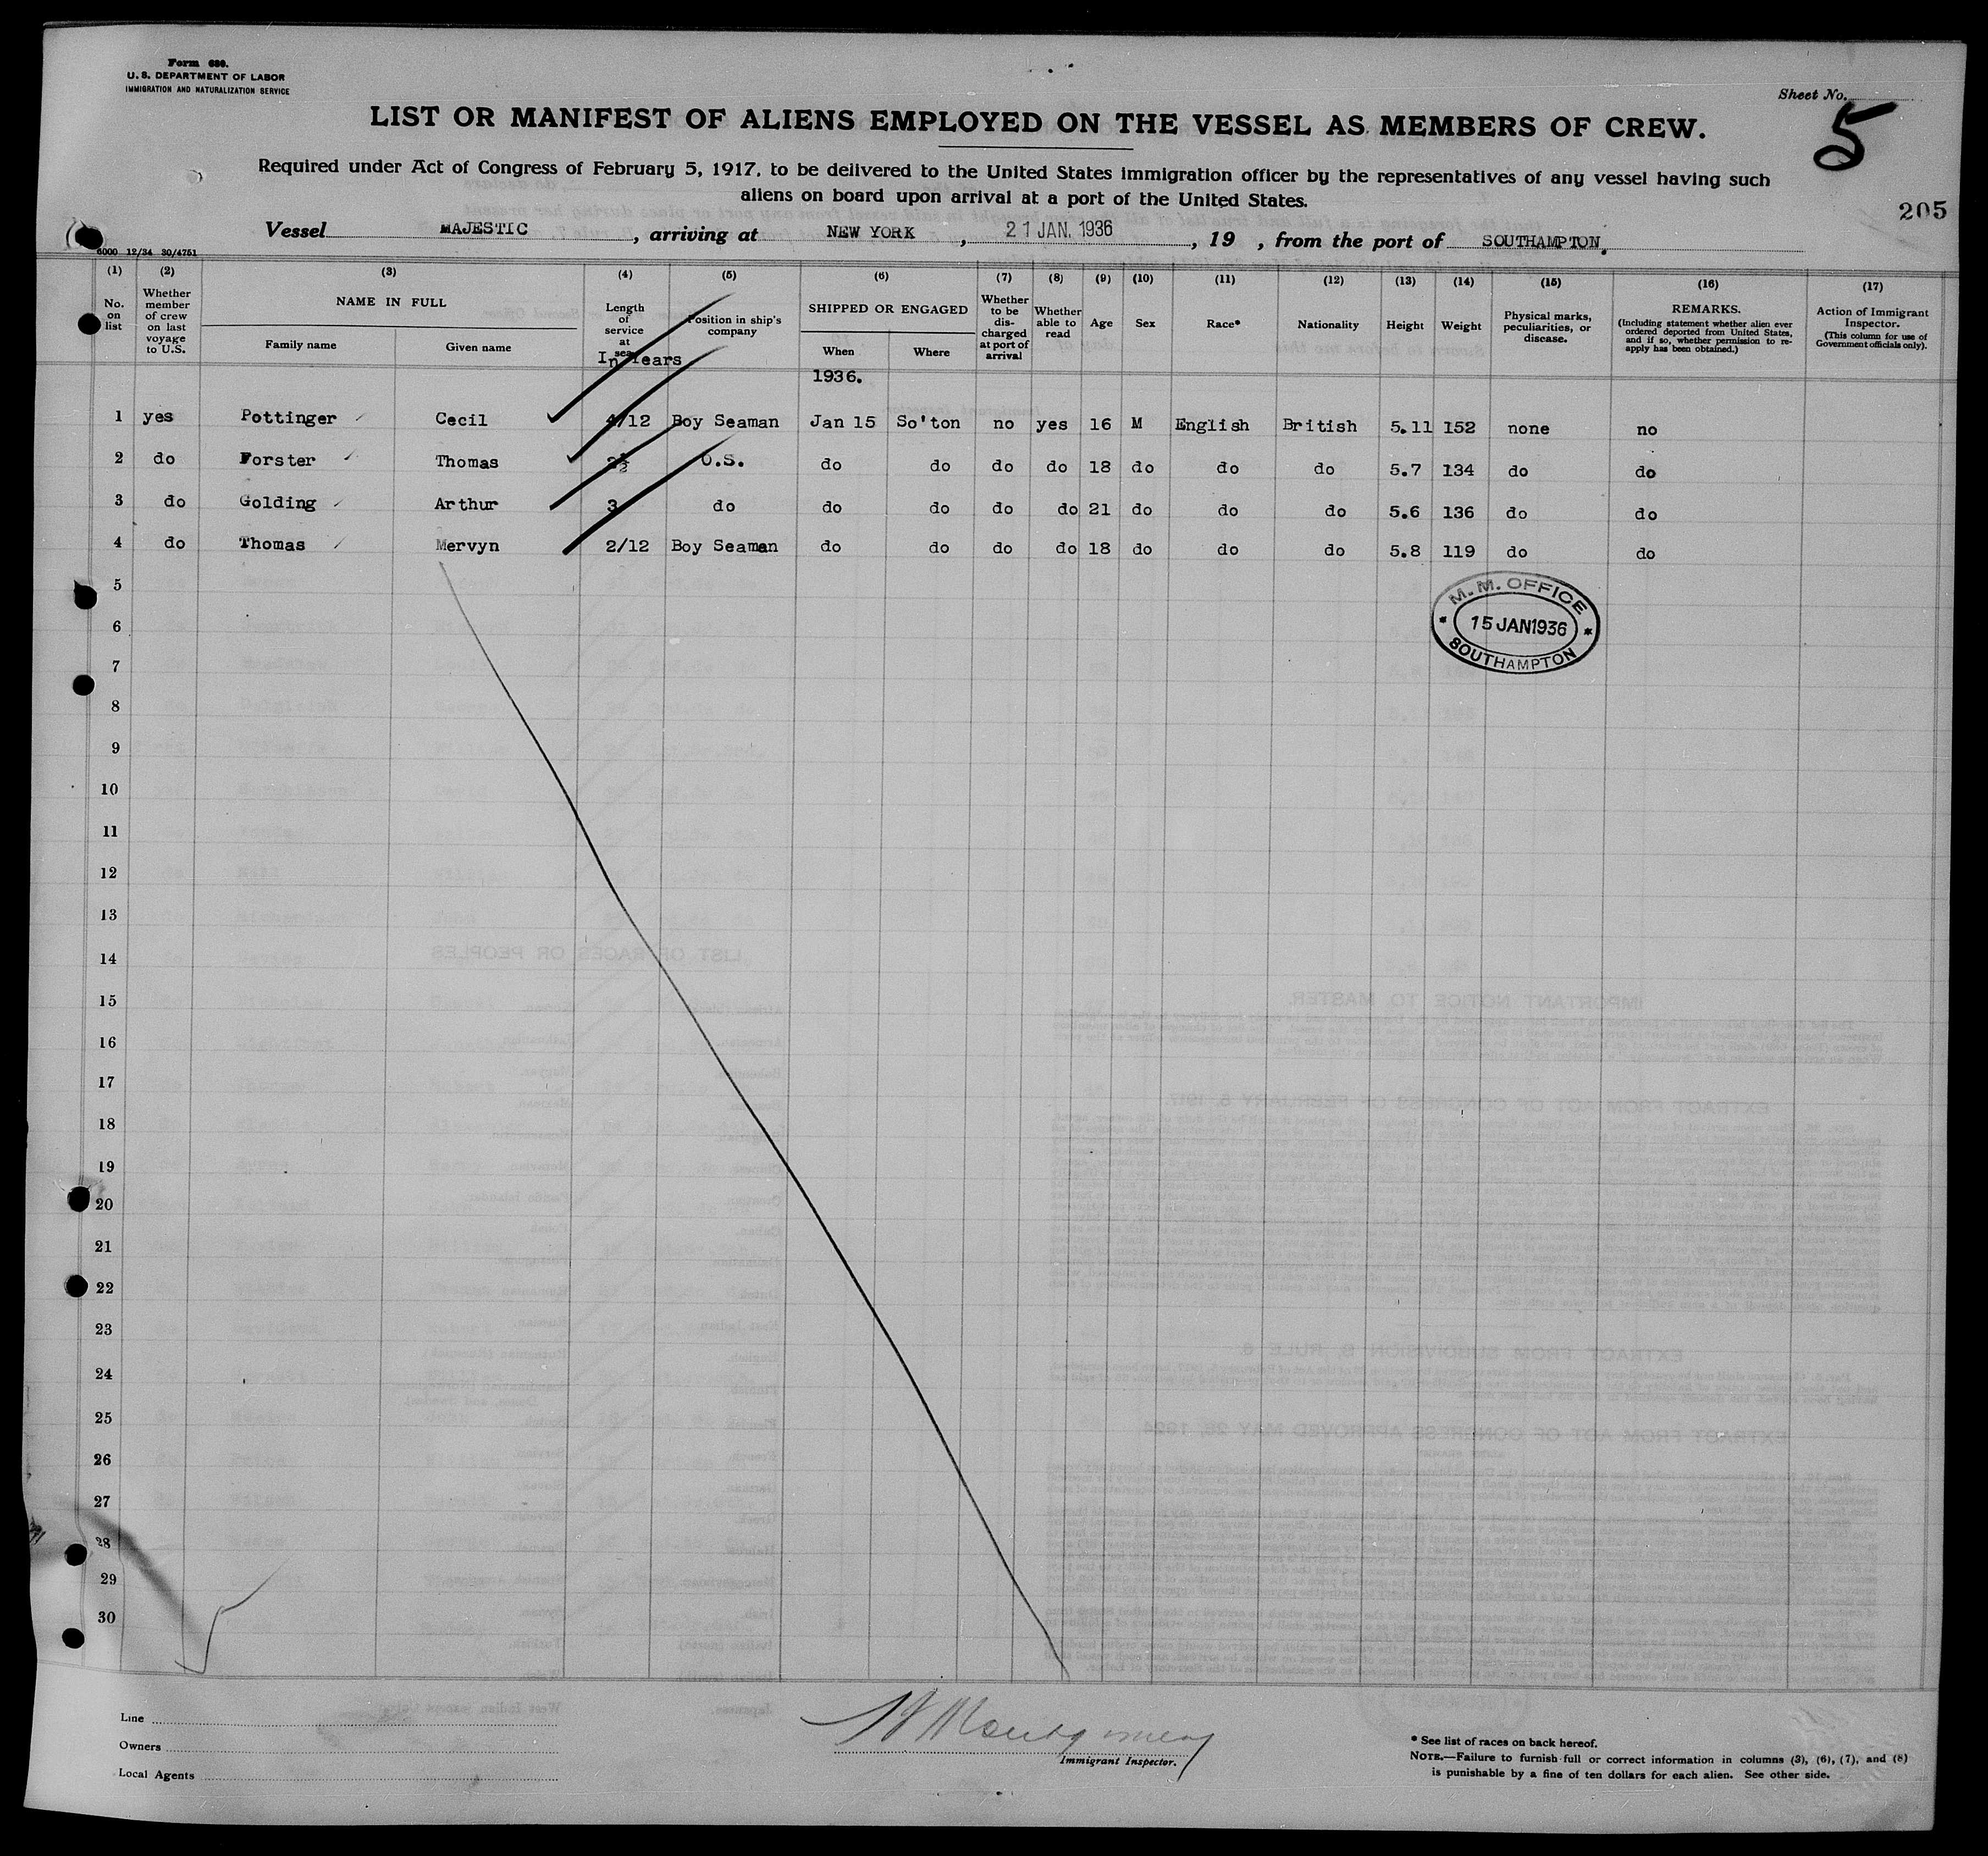 Form 680.
U. S. DEPARTMENT OF LABOR
IMMIGRATION AND NATURALIZATION SERVICE
Sheet No.
5
LIST OR MANIFEST OF ALIENS EMPLOYED ON THE VESSEL AS MEMBERS OF CREW.
Required under Act of Congress of February 5, 1917, to be delivered to the United States immigration officer by the representatives of any vessel having such
aliens on board upon arrival at a port of the United States.
205
Vessel MAJESTIC, arriving at NEW YORK, 21 JAN. 1936, 19 , from the port of SOUTHAMPTON.
6000 12/34 30/4751
(1) (2) (3) (4) (5) (6) (7) (8) (9) (10) (11) (12) (13) (14) (15) (16) (17)
No. on list
Whether member of crew on last voyage to U.S.
NAME IN FULL
Family name
Given name
Length of service at sea
In Years
Position in ship's company
SHIPPED OR ENGAGED
When
Where
1936.
Whether to be discharged at port of arrival
Whether able to read
Age
Sex
Race*
Nationality
Height
Weight
Physical marks, peculiarities, or disease.
REMARKS.
(Including statement whether alien ever ordered deported from United States, and if so, whether permission to reapply has been obtained.)
Action of Immigrant Inspector.
(This column for use of Government officials only).
1 yes Pottinger Cecil 4/12 Boy Seaman Jan 15 So'ton no yes 16 M English British 5.11 152 none no
2 do Forster Thomas 2½ O.S. do do do do 18 do do do 5.7 134 do do
3 do Golding Arthur 3 do do do do do 21 do do do 5.6 136 do do
4 do Thomas Mervyn 2/12 Boy Seaman do do do do 18 do do do 5.8 119 do do
M. M. OFFICE
15 JAN 1936
SOUTHAMPTON
5
6
7
8
9
10
11
12
13
14
15
16
17
18
19
20
21
22
23
24
25
26
27
28
29
30
Line
Owners
Local Agents
Montgomery
Immigrant Inspector.
* See list of races on back hereof.
NOTE.—Failure to furnish full or correct information in columns (3), (6), (7), and (8)
is punishable by a fine of ten dollars for each alien. See other side.